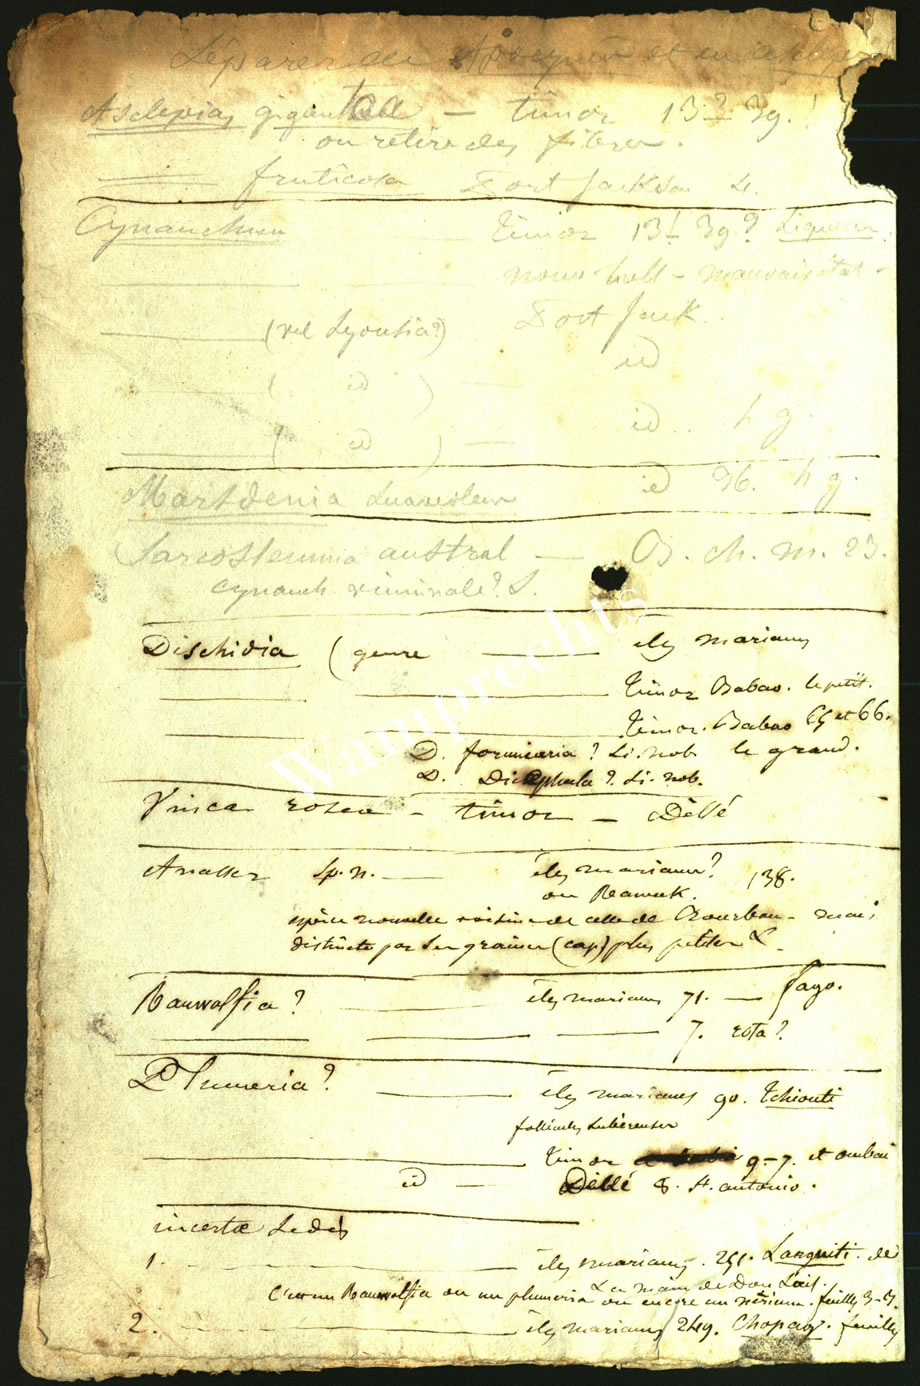 Séparer les Apocynées et en
Asclepias gigantea — timor 13 39.
on retire des fibres.
fruticosa Port Jackson
Cynanchum timor 13 39? Liqueur.
nouv holl - mauvais état -
(vel Lyonsia?) Port Jack.
( id ) — id
( id ) — id h g.
Marsdenia suaveolens id 36. h g.
Sarcostemma austral — B. ch. m. 23.
cynanch viminale? L.
Dischidia (genre — iles mariannes
timor Babao. le petit.
timor. Babao 65 et 66.
D. formicaria? Li. nob. le grand.
D. Dicephala? Li. nob.
Vinca rosea - timor - Dellé
Anasser sp. n. — iles mariann?
ou Rawak. 138.
espèce nouvelle voisine de celle de Bourbon - mais
distincte par ses graines (cap) plus petites &.
Rauwolfia? — iles mariannes 71. — fago.
7. rota?
Plumeria? — iles mariannes 90. tchiouti
follicules tubéreuses
timor 9-7. et ombai
id — Dellé S. antonio.
incertæ sedis
1. — iles mariannes. 251. Langniti. de
La main de Don Luis.
C'est un Rauwolfia ou un plumeria ou encore un nérium. feuilles 3-
2. — iles mariannes 249. Chopag. feuilles
Wamprechts